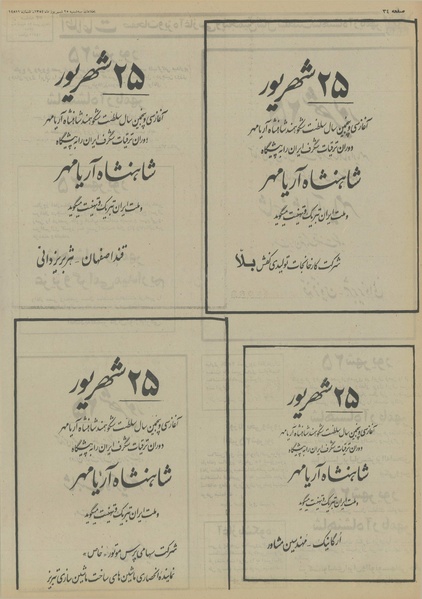 صفحه ۳۴
۲۵ شهریور
آغاز سی و پنجمین سال سلطنت شکوهمند شاهنشاه آریامهر
دوران ترقیات شگرف ایران را به پیشگاه
شاهنشاه آریامهر
و ملت ایران تبریک و تهنیت میگوید
شرکت کارخانجات تولیدی کفش بلا
۲۵ شهریور
آغاز سی و پنجمین سال سلطنت شکوهمند شاهنشاه آریامهر
دوران ترقیات شگرف ایران را به پیشگاه
شاهنشاه آریامهر
و ملت ایران تبریک و تهنیت میگوید
قند اصفهان - هژبر یزدانی
۲۵ شهریور
آغاز سی و پنجمین سال سلطنت شکوهمند شاهنشاه آریامهر
دوران ترقیات شگرف ایران را به پیشگاه
شاهنشاه آریامهر
و ملت ایران تبریک و تهنیت میگوید
ارگانیک - مهندسین مشاور
۲۵ شهریور
آغاز سی و پنجمین سال سلطنت شکوهمند شاهنشاه آریامهر
دوران ترقیات شگرف ایران را به پیشگاه
شاهنشاه آریامهر
و ملت ایران تبریک و تهنیت میگوید
شرکت سهامی پرس موتور «خاص»
نماینده انحصاری ماشین های ساخت ماشین سازی تبریز